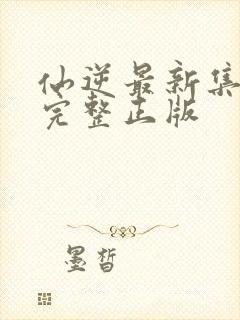 仙逆最新集
完整正版
墨皙